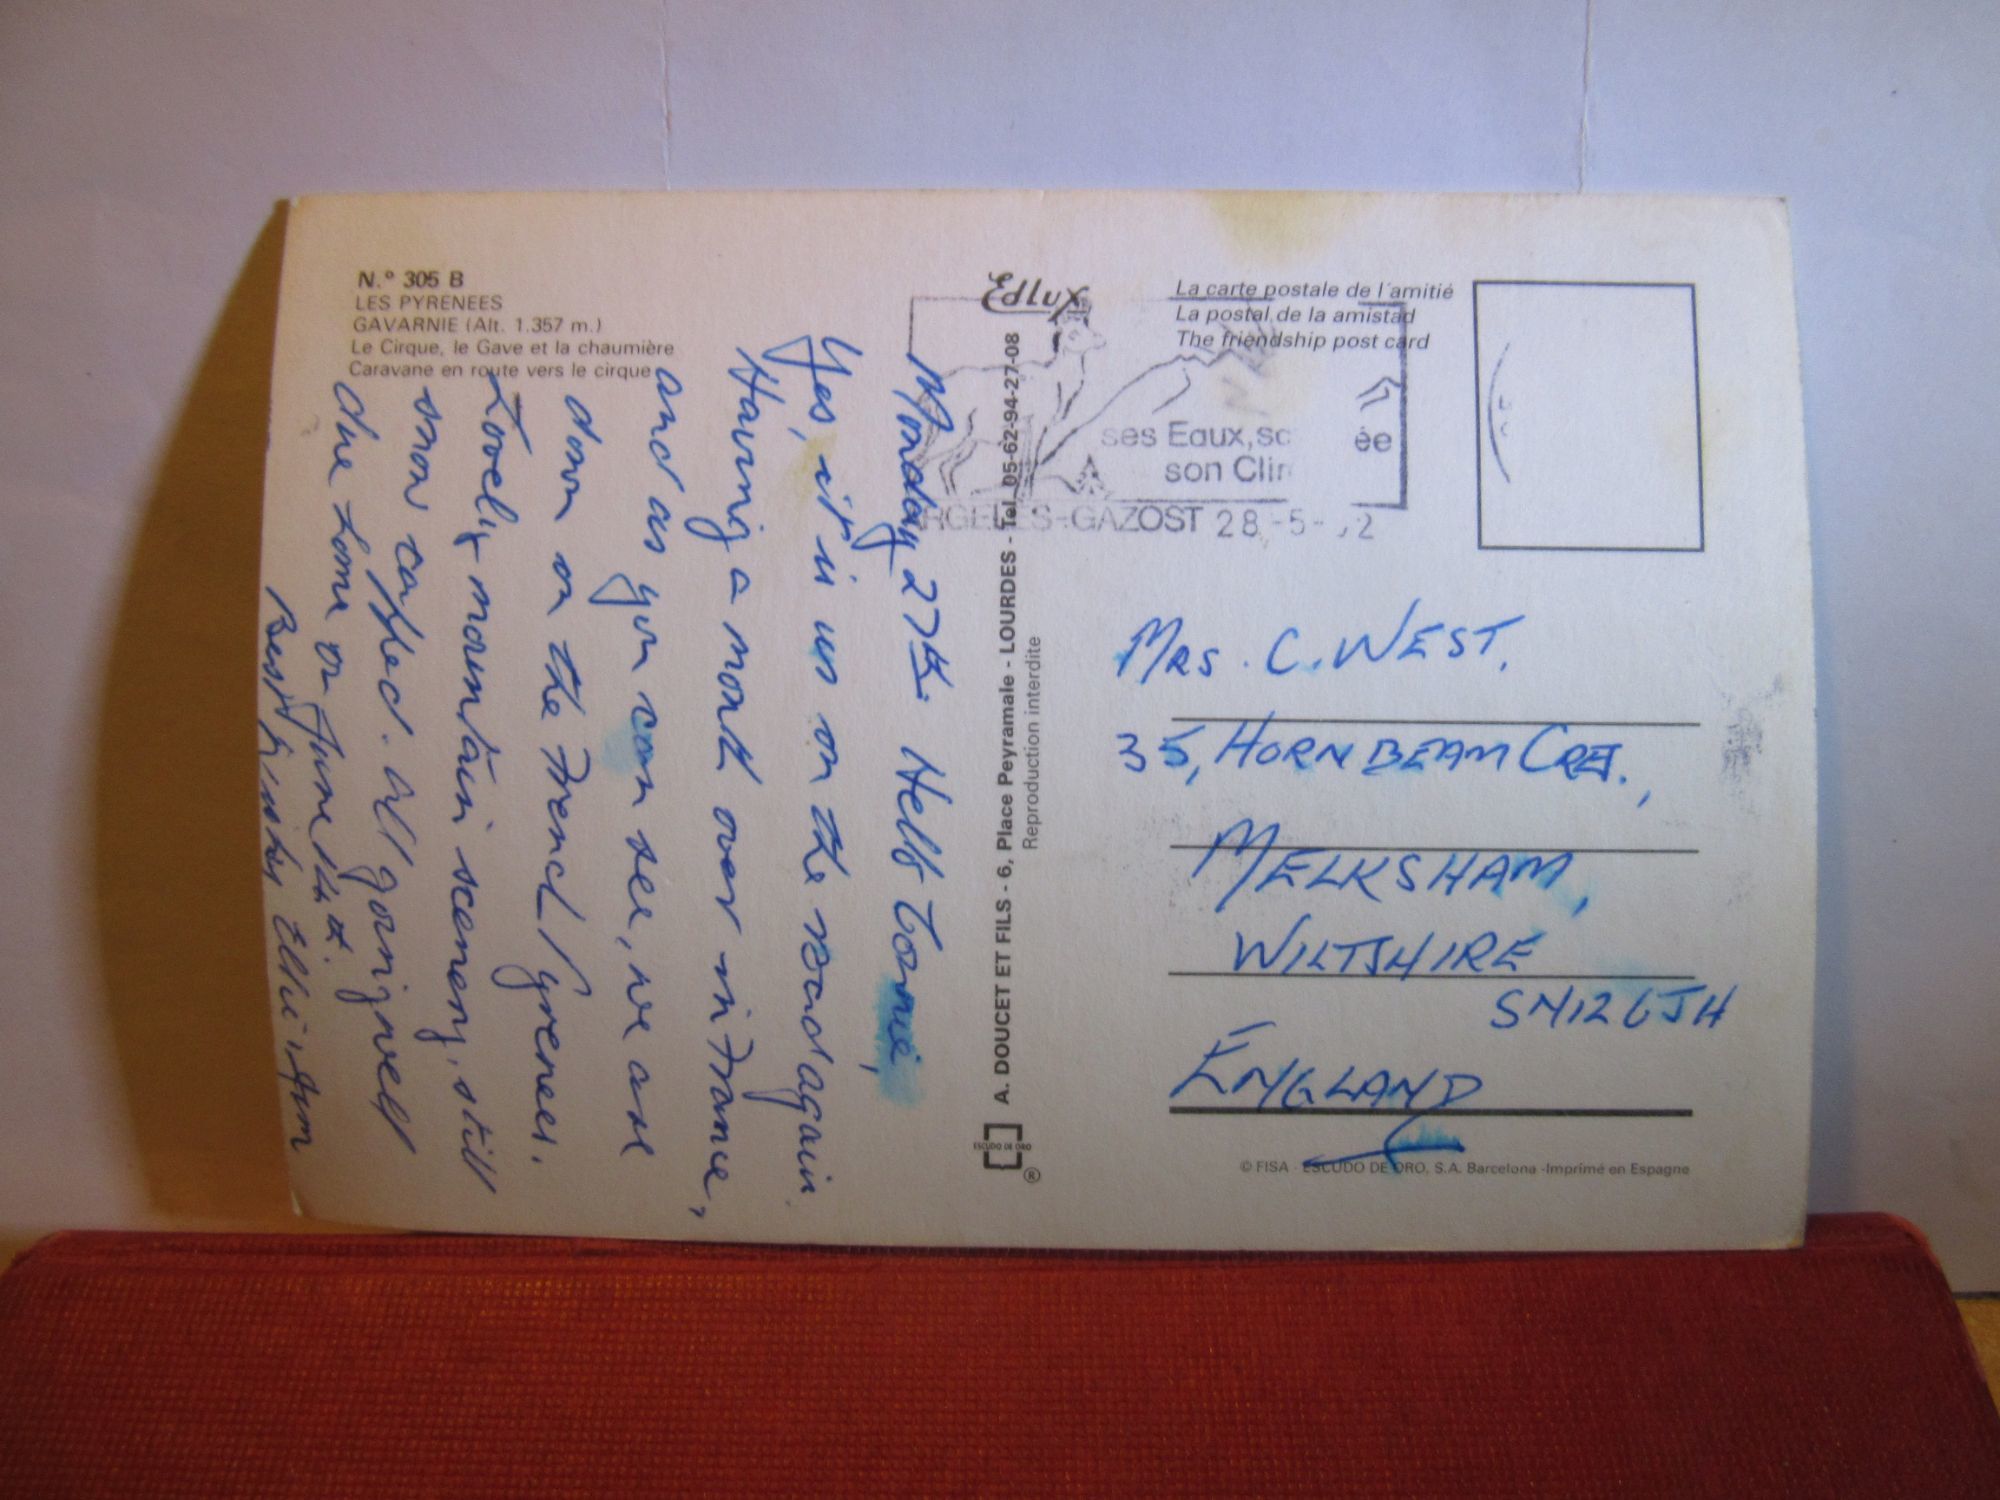 N.º 305 B
LES PYRENEES
GAVARNIE (Alt. 1.357 m.)
Le Cirque, le Gave et la chaumière
Caravane en route vers le cirque
Monday 27th. Hello
Yes, it is us on the road again
Having a month over in France,
and as you can see, we are
down on the French Pyrenees.
Lovely mountain scenery, still
snow capped. All going well
due home on June 14th.
Best wishes Ellie
Edlux
A. DOUCET ET FILS - 6, Place Peyramale - LOURDES - Tel. 05-62-94-27-08
Reproduction interdite
ESCUDO DE ORO
®
La carte postale de l'amitié
La postal de la amistad
The friendship post card
ses Eaux,
son
ARGELES-GAZOST 28-5-
MRS. C. WEST.
35, HORNBEAM CRES.,
MELKSHAM,
WILTSHIRE
SN12 6JH
ENGLAND
© FISA - ESCUDO DE ORO, S.A. Barcelona -Imprimé en Espagne